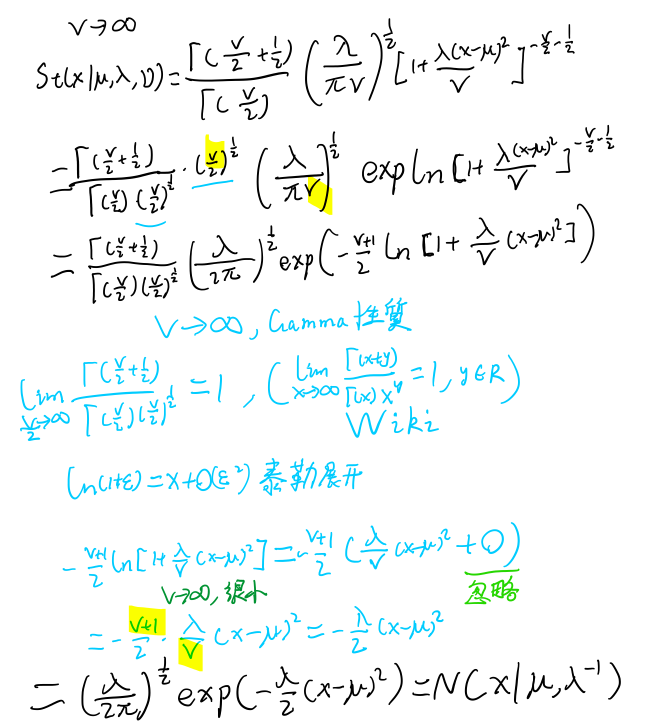 ν→∞
St(x|μ,λ,ν)=Γ(ν/2+1/2)/Γ(ν/2) (λ/πν)^{1/2} [1+λ(x-μ)²/ν]^{-ν/2-1/2}
=Γ(ν/2+1/2)/Γ(ν/2)(ν/2)^{1/2} · (ν/2)^{1/2} (λ/πν)^{1/2} exp ln [1+λ(x-μ)²/ν]^{-ν/2-1/2}
=Γ(ν/2+1/2)/Γ(ν/2)(ν/2)^{1/2} (λ/2π)^{1/2} exp(-ν+1/2 ln [1+λ/ν (x-μ)²])
ν→∞, Gamma 性質
lim ν/2→∞ Γ(ν/2+1/2)/Γ(ν/2)(ν/2)^{1/2} =1, (lim x→∞ Γ(x+y)/Γ(x)x^y =1, y∈R)
Wiki
ln(1+ε)=x+O(ε²) 泰勒展开
-ν+1/2 ln[1+λ/ν (x-μ)²]=-ν+1/2 (λ/ν (x-μ)²+O)
ν→∞, 很小 忽略
=-ν+1/2 · λ/ν (x-μ)²=-λ/2 (x-μ)²
=(λ/2π)^{1/2} exp(-λ/2 (x-μ)²)=N(x|μ,λ^{-1})